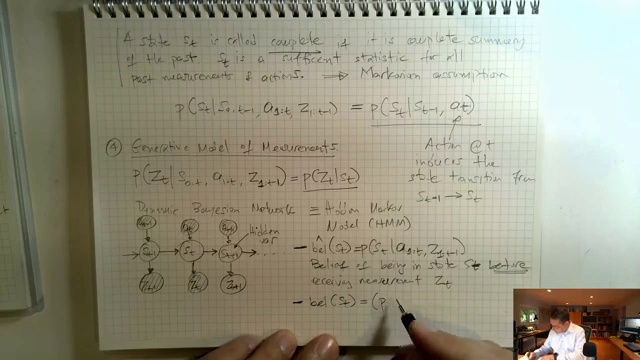 A state st is called complete if it is complete summary
of the past. st is a sufficient statistic for all
past measurements & actions. ⟹ Markovian assumption
p(st|s0:t-1, a1:t, z1:t-1) = p(st|st-1, at)
Action @ t
induces the
state transition from
st-1 → st
④ Generative Model of Measurements
p(zt|s0:t, a1:t, z1:t-1) = p(zt|st)
Dynamic Bayesian Network ≡ Hidden Markov
Model (HMM)
Hidden
var
st st+1 ...
zt zt+1
- bel(st) = p(st|a1:t, z1:t-1)
Belief of being in state st before
receiving measurement zt
- bel(st) = (p